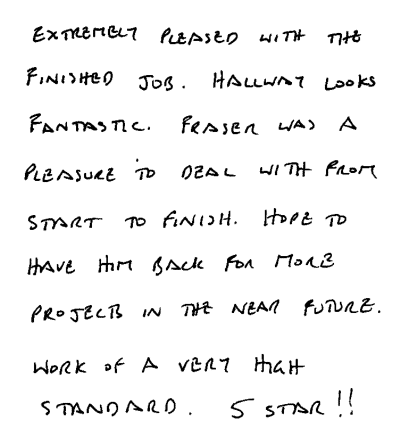 EXTREMELY PLEASED WITH THE
FINISHED JOB. HALLWAY LOOKS
FANTASTIC. FRASER WAS A
PLEASURE TO DEAL WITH FROM
START TO FINISH. HOPE TO
HAVE HIM BACK FOR MORE
PROJECTS IN THE NEAR FUTURE.
WORK OF A VERY HIGH
STANDARD. 5 STAR!!